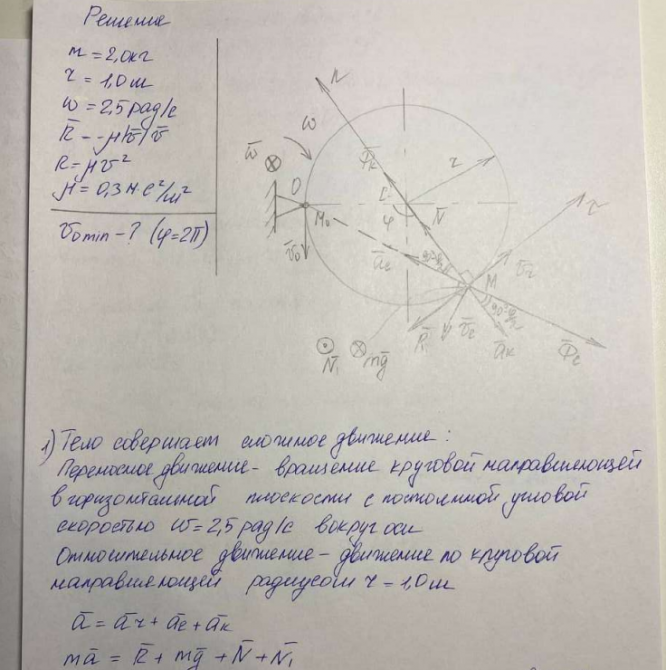 Решение
m = 2,0 кг
r = 1,0 м
ω = 2,5 рад/с
R̄ = -μ|v̄|v̄
R = μv²
μ = 0,3 Н·с²/м²
v₀min - ? (φ = 2π)
n
ω
ω̄
Φ̄к
r
O
M₀
C
φ
N̄
τ
v̄₀
āe
90°-φ/2
M
v̄r
90°-φ/2
R̄
v̄e
āк
Φ̄e
N̄₁
mḡ
1) Тело совершает сложное движение:
Переносное движение - вращение круговой направляющей
в горизонтальной плоскости с постоянной угловой
скоростью ω = 2,5 рад/с вокруг оси
Относительное движение - движение по круговой
направляющей радиусом r = 1,0 м
ā = ār + āe + āк
mā = R̄ + mḡ + N̄ + N̄₁